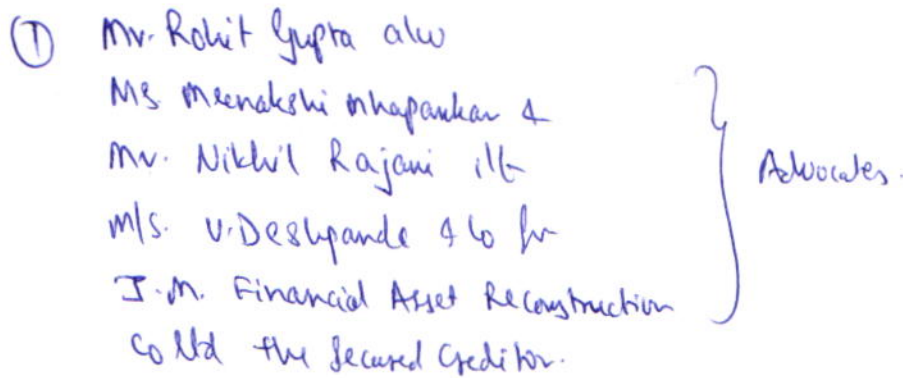 ① Mr. Rohit Gupta a/w
Ms. Meenakshi Mhapankar &
Mr. Nikhil Rajani i/b
M/s. V. Deshpande & Co for
J.M. Financial Asset Reconstruction
Co Ltd the Secured Creditor.
Advocates.